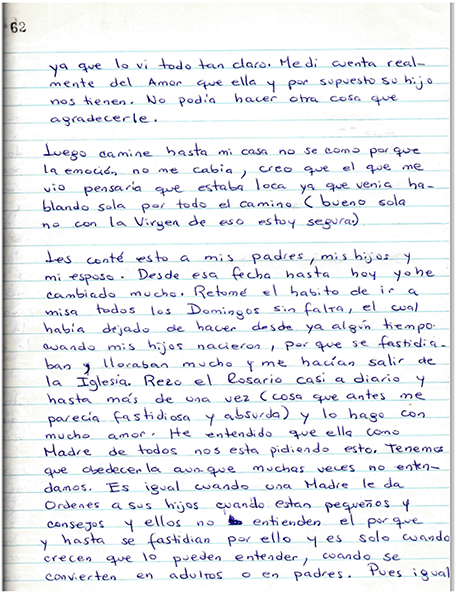 62
ya que lo vi todo tan claro. Me di cuenta real-
mente del Amor que ella y por supuesto su hijo
nos tienen. No podía hacer otra cosa que
agradecerle.
Luego camine hasta mi casa no se como por que
la emoción no me cabia, creo que el que me
vio pensaría que estaba loca ya que venia ha-
blando sola por todo el camino (bueno sola
no con la Virgen de eso estoy segura)
Les conté esto a mis padres, mis hijos y
mi esposo. Desde esa fecha hasta hoy yo he
cambiado mucho. Retomé el habito de ir a
misa todos los Domingos sin falta, el cual
había dejado de hacer desde ya algún tiempo
cuando mis hijos nacieron, por que se fastidia-
ban y lloraban mucho y me hacían salir de
la Iglesia. Rezo el Rosario casi a diario y
hasta más de una vez (cosa que antes me
parecía fastidiosa y absurda) y lo hago con
mucho amor. He entendido que ella como
Madre de todos nos esta pidiendo esto. Tenemos
que obedecerla aunque muchas veces no enten-
damos. Es igual cuando una Madre le da
Ordenes a sus hijos cuando estan pequeños y
consejos y ellos no entienden el por que
y hasta se fastidian por ello y es solo cuando
crecen que lo pueden entender, cuando se
convierten en adultos o en padres. Pues igual